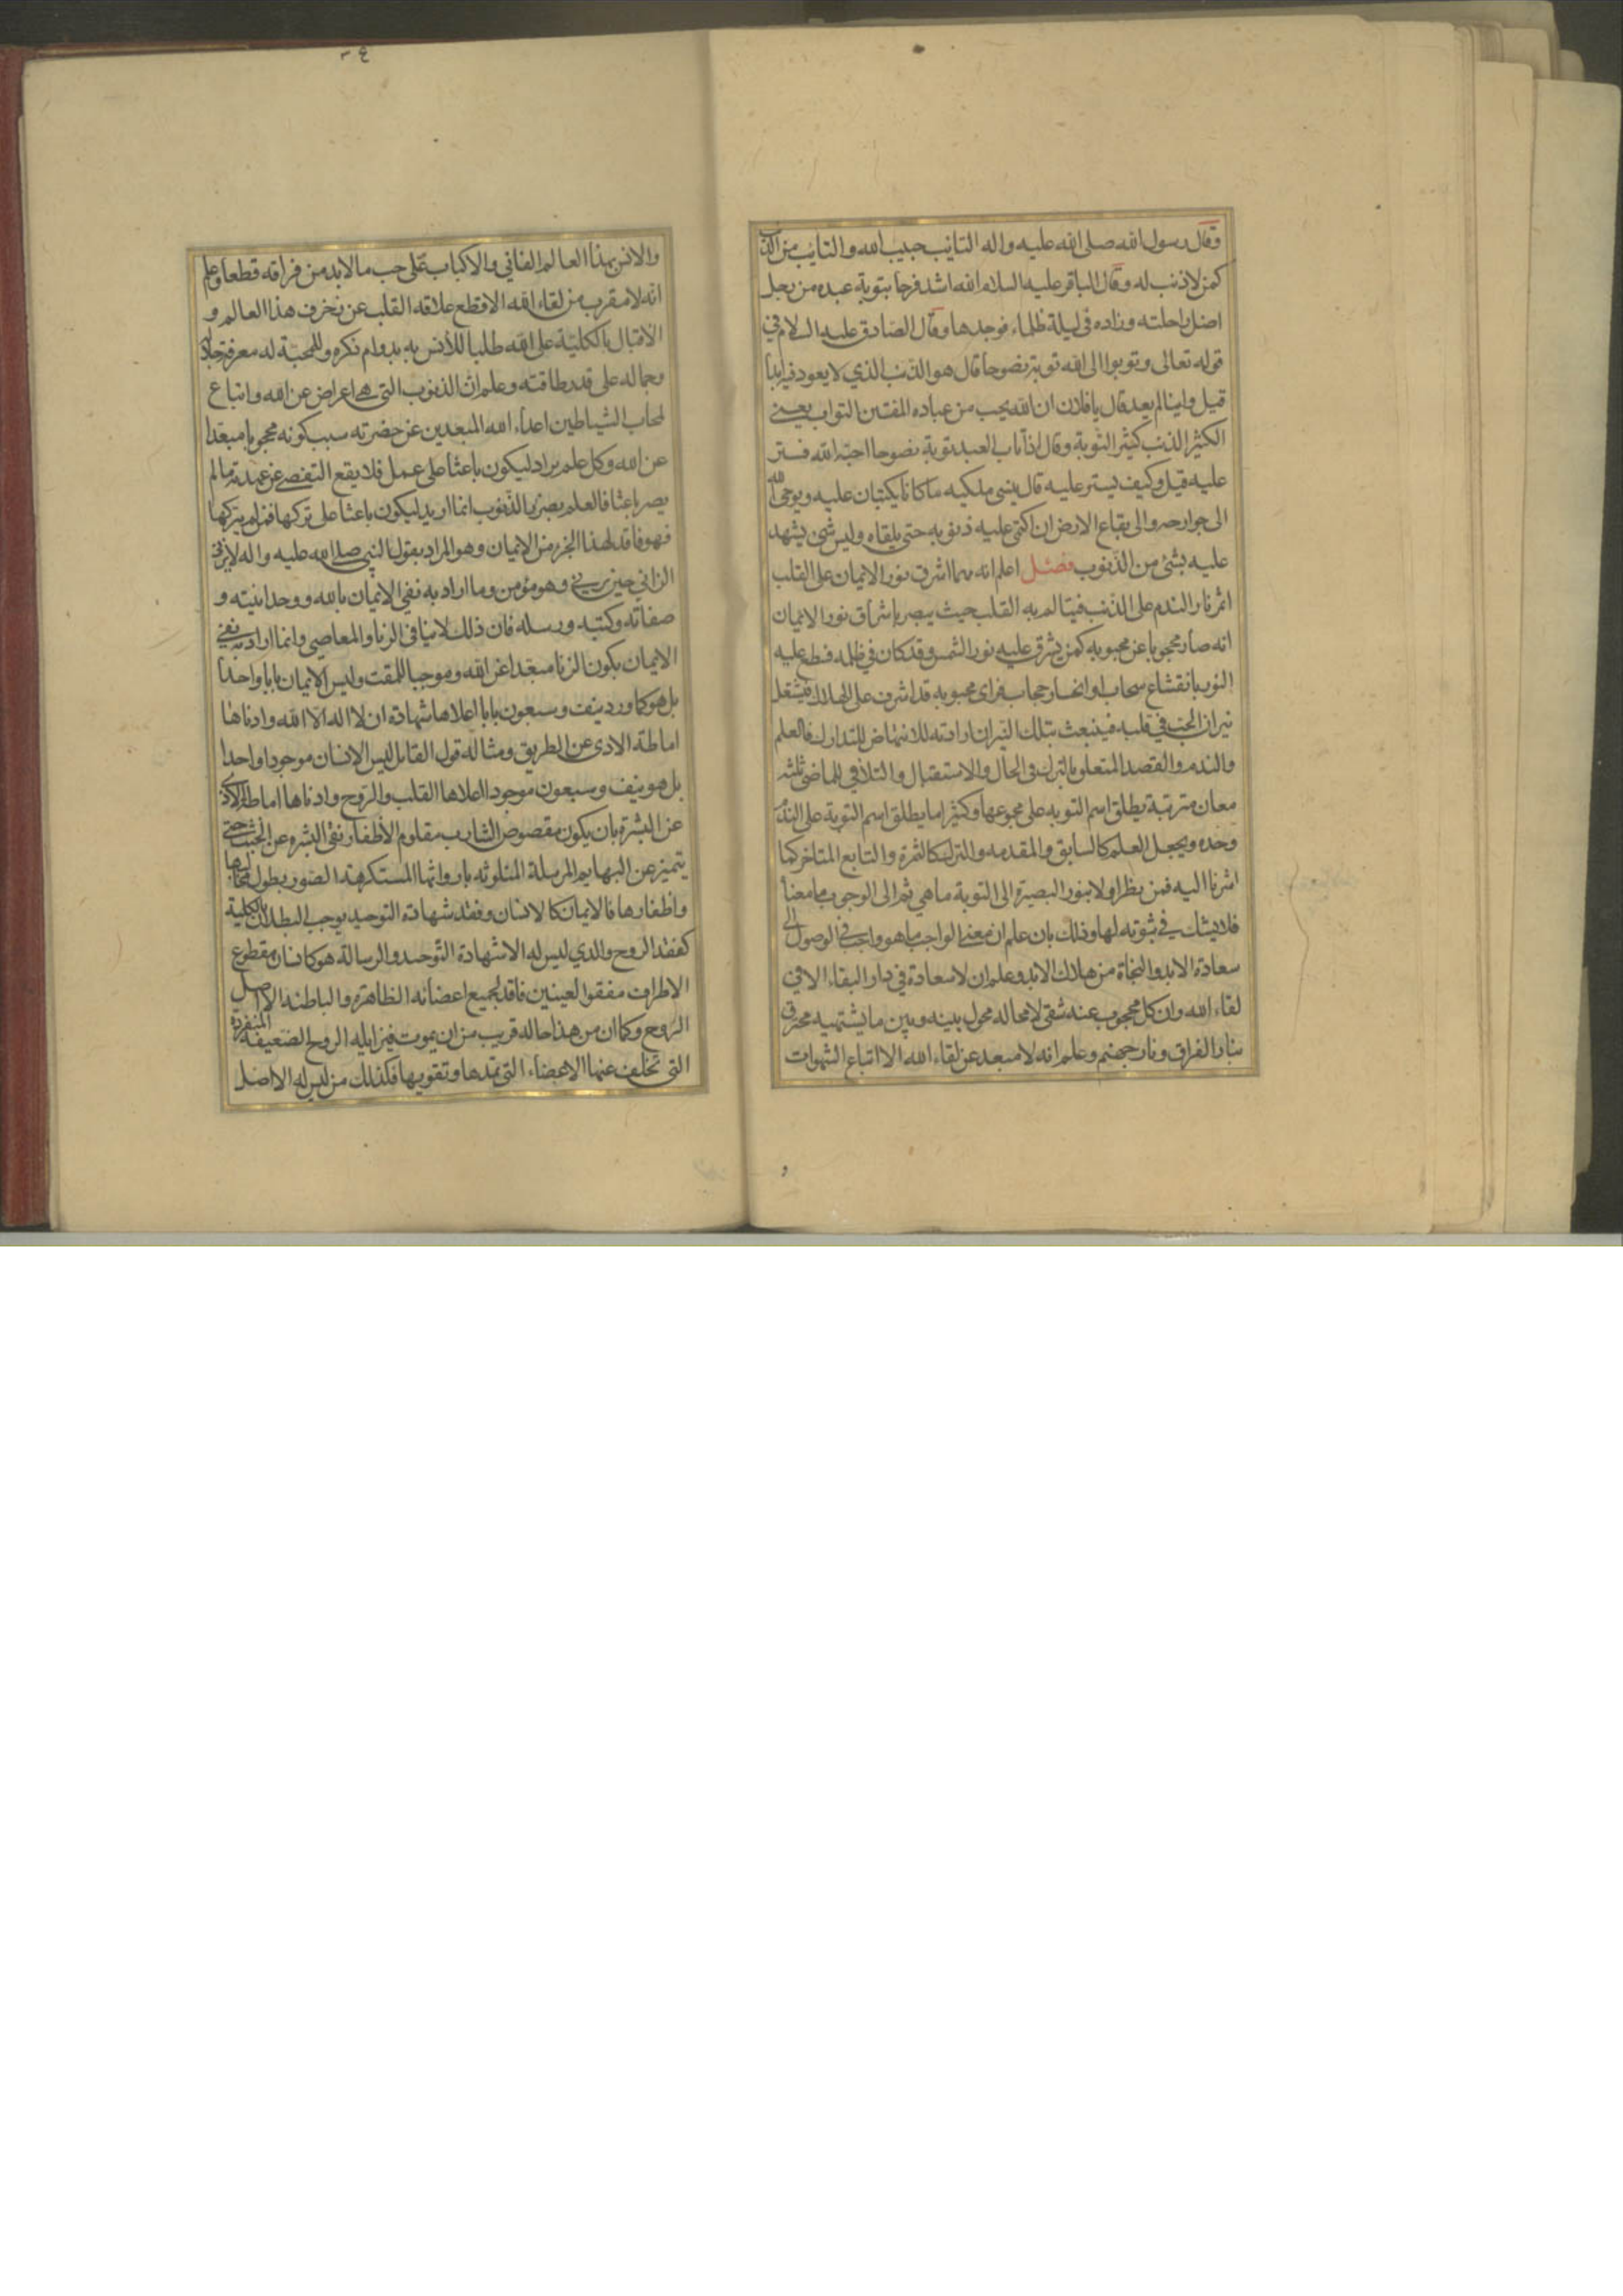 وقال رسول الله صلى الله عليه واله التائب حبيب الله والتائب من الذنب
كمن لا ذنب له وقال الباقر عليه السلام الله اشد فرحا بتوبة عبده من رجل
اضل راحلته وزاده في ليلة ظلماء فوجدها وقال الصادق عليه السلام في
قوله تعالى وتوبوا الى الله توبة نصوحا قال هو الذنب الذي لا يعود فيه ابدا
قيل واينا لم يعد قال يا فلان ان الله يحب من عباده المفتن التواب يعني
الكثير الذنب كثير التوبة وقال اذا تاب العبد توبة نصوحا احبه الله فستر
عليه قيل وكيف يستر عليه قال ينسى ملكيه ما كانا يكتبان عليه ويوحى الله
الى جوارحه والى بقاع الارض ان اكتمى عليه ذنوبه حتى يلقاه وليس شئ يشهد
عليه بشئ من الذنوب فصل اعلم انه مهما اشرق نور الايمان على القلب
اثمر نار الندم على الذنب فيتالم به القلب حيث يبصر باشراق نور الايمان
انه صار محجوبا عن محبوبه كمن يشرق عليه نور الشمس وقد كان في ظلمة فسطع عليه
النور بانقشاع سحاب او انحسار حجاب فراى محبوبه قد اشرف على الهلاك فيشتعل
نيران الحب في قلبه فينبعث بتلك النيران ارادته للانتهاض للتدارك فالعلم
والندم والقصد المتعلق بالترك في الحال والاستقبال والتلافي للماضى ثلثة
معان مترتبة يطلق اسم التوبه على مجموعها وكثيرا ما يطلق اسم التوبة على الندم
وحده ويجعل العلم كالسابق والمقدمه والترك كالثمرة والتابع المتاخر كما
اشرنا اليه فمن نظر اولا بنور البصيرة الى التوبة ما هي ثم الى الوجوب ما معناه
فلا يشك في ثبوته لها وذلك بان علم ان معنى الواجب ما هو واجب في الوصول الى
سعادة الابد والنجاة من هلاك الابد وعلم ان لا سعادة في دار البقاء الا في
لقاء الله وان كل محجوب عنه شقى لا محاله محول بينه وبين ما يشتهيه محترق
بنار الفراق ونار جهنم وعلم انه لا مبعد عن لقاء الله الا اتباع الشهوات
والانس بهذا العالم الفاني والاكباب على حب ما لا بد من فراقه قطعا وعلم
انه لا مقرب من لقاء الله الا قطع علاقه القلب عن زخرف هذا العالم و
الاقبال بالكلية على الله طلبا للأنس به بدوام ذكره وللمحبة له بمعرفة جلاله
وجماله على قدر طاقته وعلم ان الذنوب التي هي اعراض عن الله واتباع
لمحاب الشياطين اعداء الله المبعدين عن حضرته سبب كونه محجوبا مبعدا
عن الله وكل علم يراد ليكون باعثا على عمل فلا يقع التفصى عن عهدته ما لم
يصر باعثا فالعلم بضرر الذنوب انما اريد ليكون باعثا على تركها فمن لم يتركها
فهو فاقد لهذا الجزء من الايمان وهو المراد بقول النبي صلى الله عليه واله لا يزنى
الزاني حين يزني وهو مؤمن وما اراد به نفي الايمان بالله ووحدانيته و
صفاته وكتبه ورسله فان ذلك لا ينافي الزنا والمعاصي وانما اراد به نفي
الايمان بكون الزنا مبعدا عن الله وموجبا للمقت وليس الايمان بابا واحدا
بل هو كما ورد نيف وسبعون بابا اعلاها شهادة ان لا اله الا الله وادناها
اماطة الاذى عن الطريق ومثاله قول القائل ليس الانسان موجودا واحدا
بل هو نيف وسبعون موجودا اعلاها القلب والروح وادناها اماطة الاذى
عن البشرة بان يكون مقصوص الشارب مقلوم الأظفار نقي البشرة عن الخبث حتى
يتميز عن البهايم المرسلة المتلوثه بارواثها المستكرهة الصور بطول مخالبها
واظفارها فالايمان كالانسان وفقد شهادة التوحيد يوجب البطلان بالكلية
كفقد الروح والذي ليس له الا شهادة التوحيد والرسالة هو كانسان مقطوع
الاطراف مفقوا العينين فاقد لجميع اعضائه الظاهرة والباطنه الا اصل
الروح وكما ان من هذا حاله قريب من ان يموت فيزايله الروح الضعيفة المنفردة
التي تخلف عنها الاعضاء التي تمدها وتقويها فكذلك من ليس له الا اصل